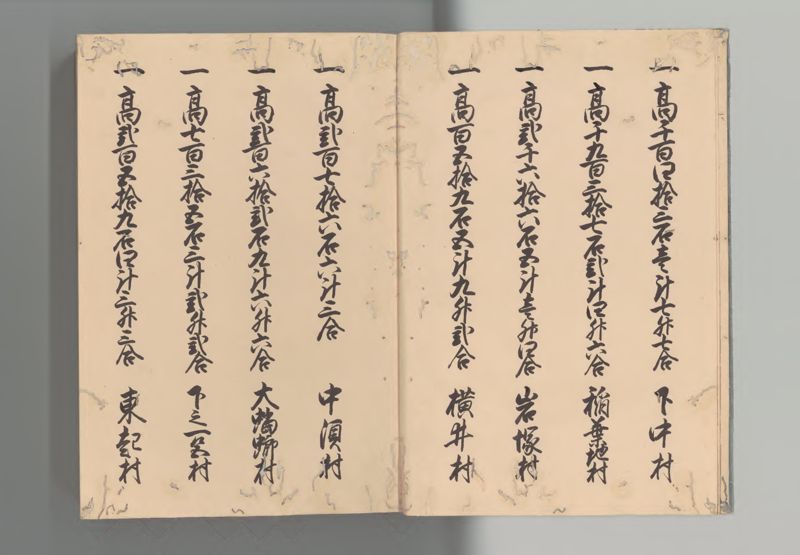 一高千百四拾三石壱斗七升七合 下中村
一高千九百三拾七石弐斗四升六合 稲葉地村
一高弐千六拾六石五斗壱升四合 岩塚村
一高百五拾九石五斗九升弐合 横井村
一高弐百七拾六石六斗三合 中須村
一高弐百六拾弐石九斗六升六合 大蟷螂村
一高七百三拾五石三斗弐升弐合 下之一色村
一高弐百五拾九石四斗三升三合 東起村